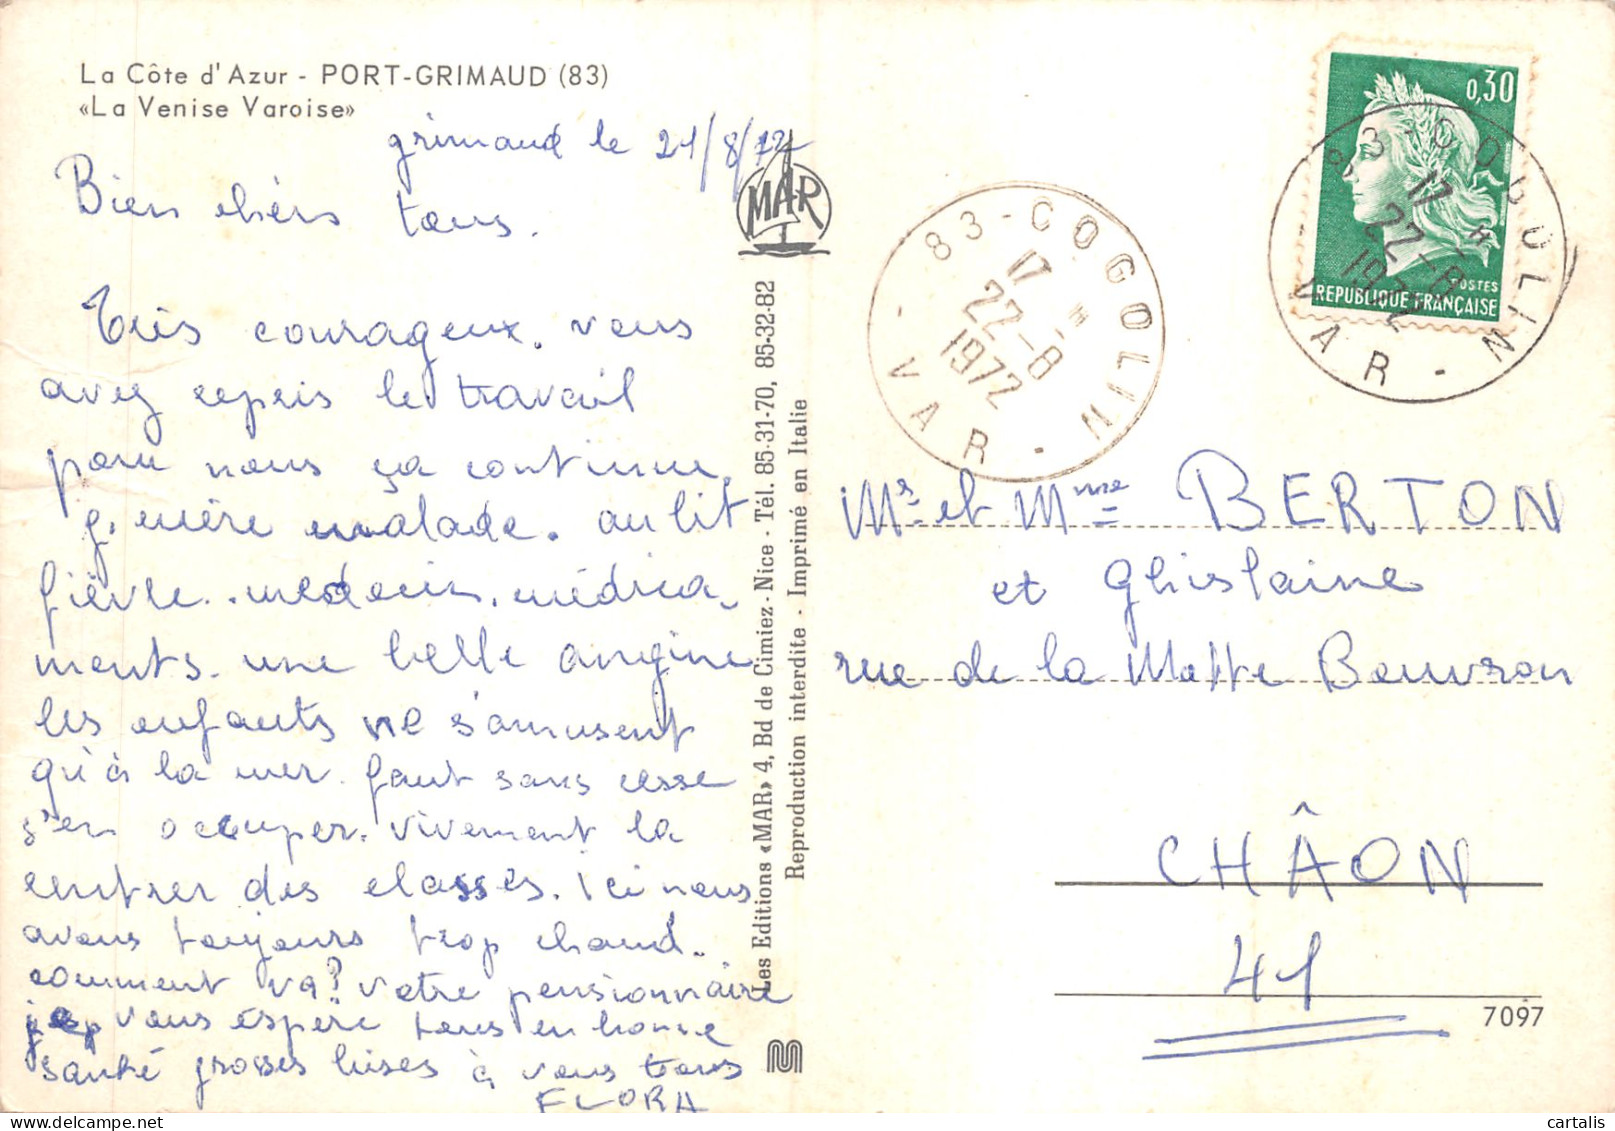 La Côte d'Azur - PORT-GRIMAUD (83)
«La Venise Varoise»
grimaud le 21/8/72
Bien chérs tous.
Très courageux. vous
avez repris le travail
pour nous ça continue
g. mère malade. au lit
fièvre. médecin. médica-
ments. une belle angine
les enfants ne s'amusent
qu'à la mer. faut sans cesse
s'en occuper. vivement la
rentrer des classes. ici nous
avons toujours trop chaud.
comment va? votre pensionnaire
vous espère tous en bonne
santé grosses bises à vous tous
FLORA
MAR
Les Editions «MAR» 4, Bd de Cimiez - Nice - Tél. 85-31-70, 85-32-82
Reproduction interdite - Imprimé en Italie
83-COGOLIN
17 H
22-8
1972
VAR
0,30
POSTES
REPUBLIQUE FRANÇAISE
83-COGOLIN
17 H
22-8
1972
VAR
Mr et Mme BERTON
et Ghislaine
rue de la Motte Beuvron
CHÂON
41
7097
cartalis